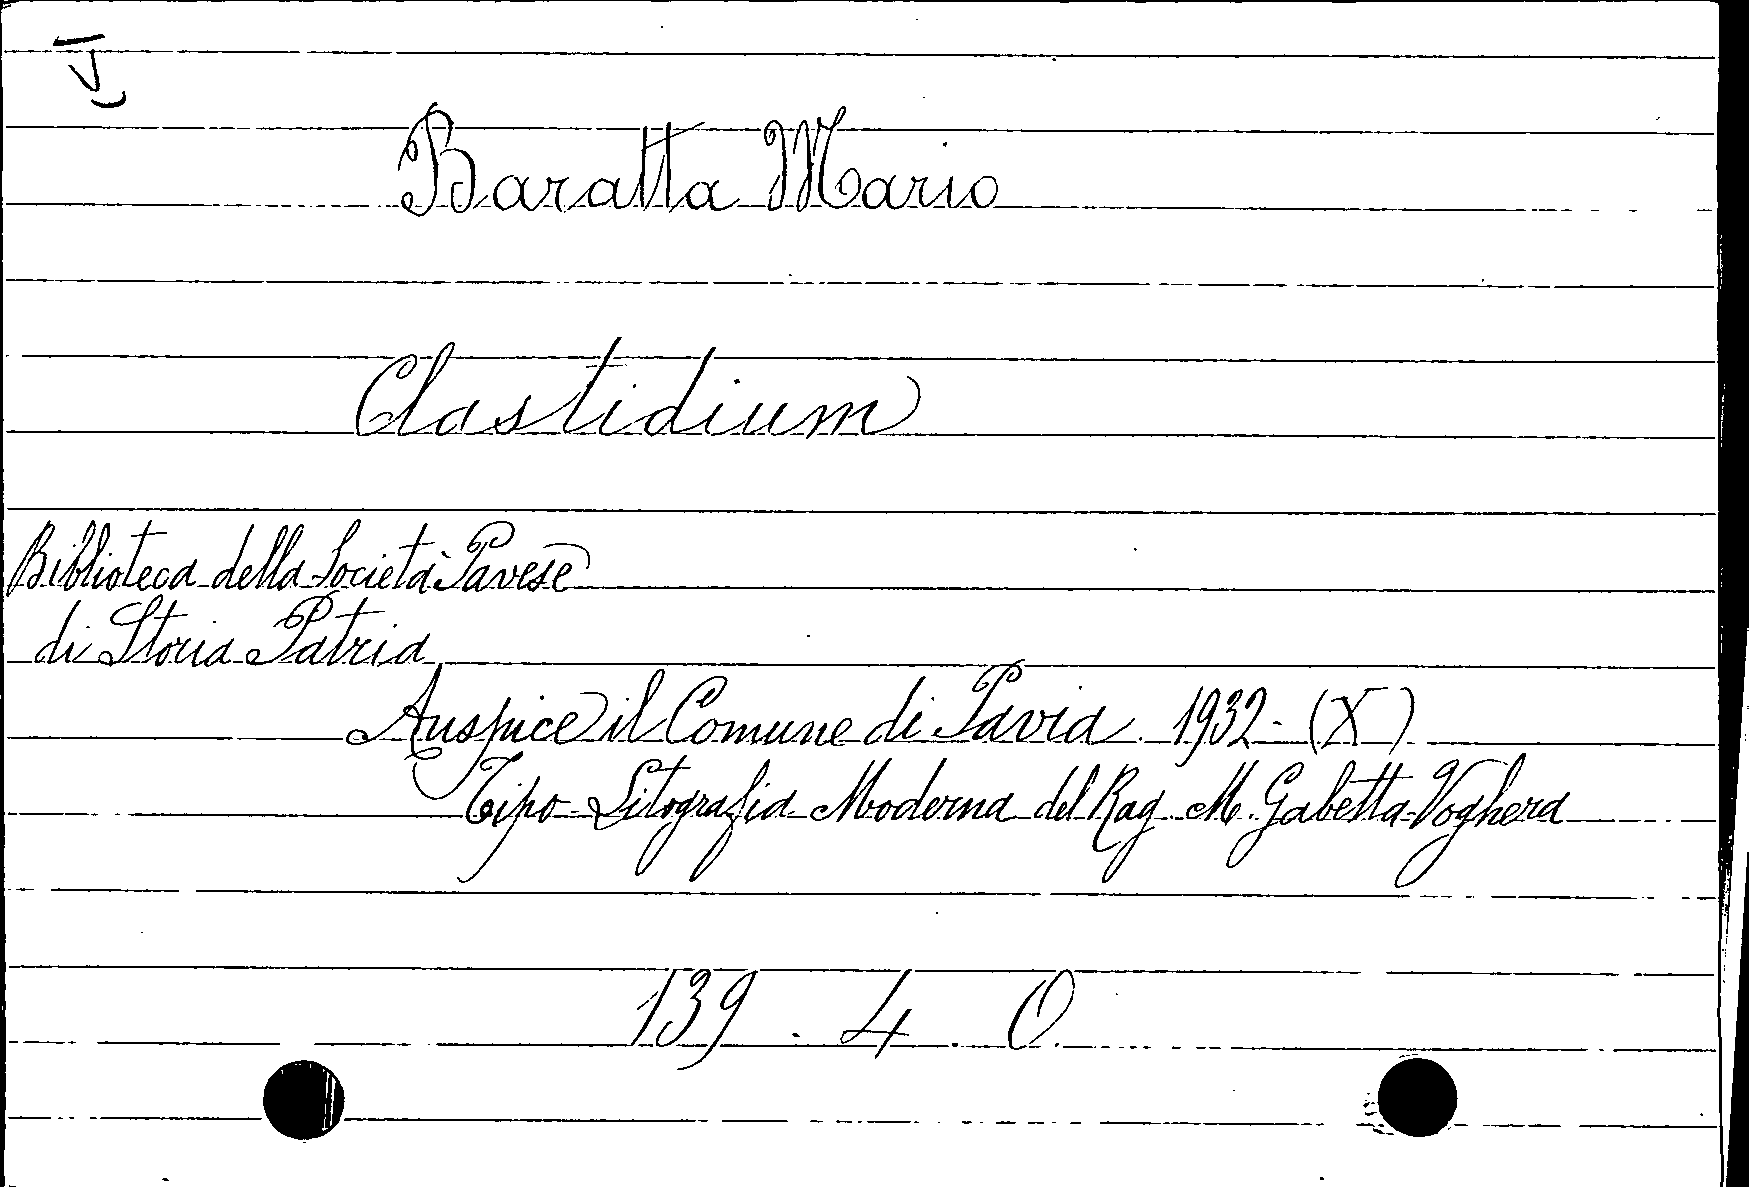 Baratta Mario
Clastidium
Biblioteca della Società Pavese
di Storia Patria
Auspice il Comune di Pavia 1932 - (X)
Tipo-Litografia Moderna del Rag. M. Gabetta-Voghera
139 . 4 . O